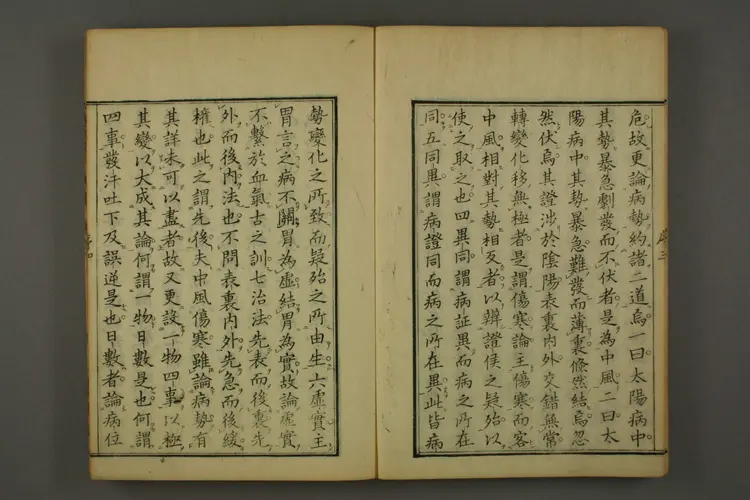 危故更論病勢約諸二道焉一曰太陽病中
其勢暴急劇發而不伏者是為中風二曰太
陽病中其勢暴急難發而薄裏倏然結焉忽
然伏焉其證涉於陰陽表裏內外交錯無常
轉變化移無極者是謂傷寒論主傷寒而客
中風相對其勢相反者以辨證候之疑殆以
使之取之也四異同謂病証異而病之所在
同五同異謂病證同而病之所在異此皆病
勢變化之所致而疑殆之所由生六虛實主
胃言之病不關胃為虛結胃為實故論虛實
不繫於血氣古之訓七治法先表而後裏先
外而後內法也不問表裏內外先急而後緩
權也此之謂先後夫中風傷寒雖論病勢有
其詳未可以盡者故又更設一物四事以極
其變以大成其論何謂一物日數是也何謂
四事發汗吐下及誤逆是也日數者論病位